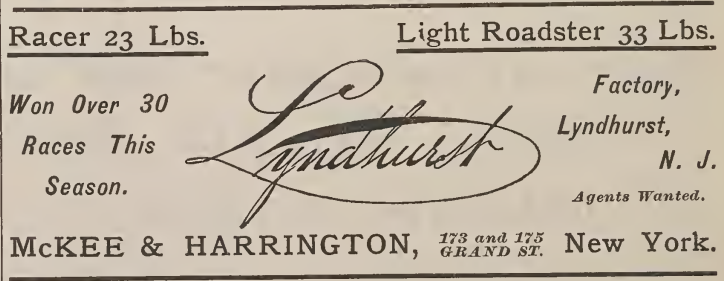 Racer 23 Lbs.
Light Roadster 33 Lbs.
Won Over 30
Races This
Season.
Lyndhurst
Factory,
Lyndhurst,
N. J.
Agents Wanted.
McKEE & HARRINGTON, 173 and 175 GRAND ST. New York.